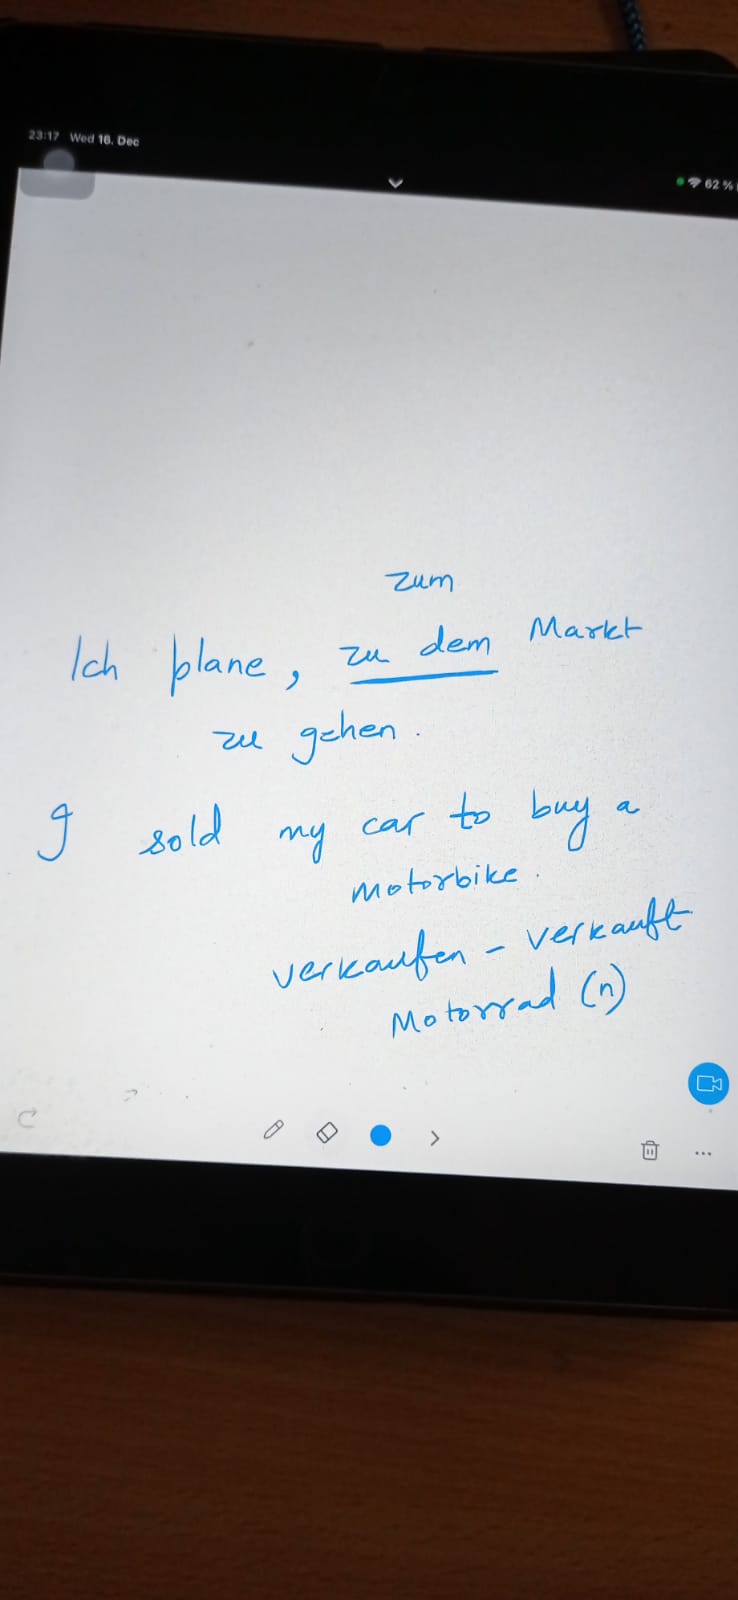 23:17 Wed 16. Dec
62 %
zum
Ich plane, zu dem Markt
zu gehen.
I sold my car to buy a
motorbike.
verkaufen - verkauft
Motorrad (n)